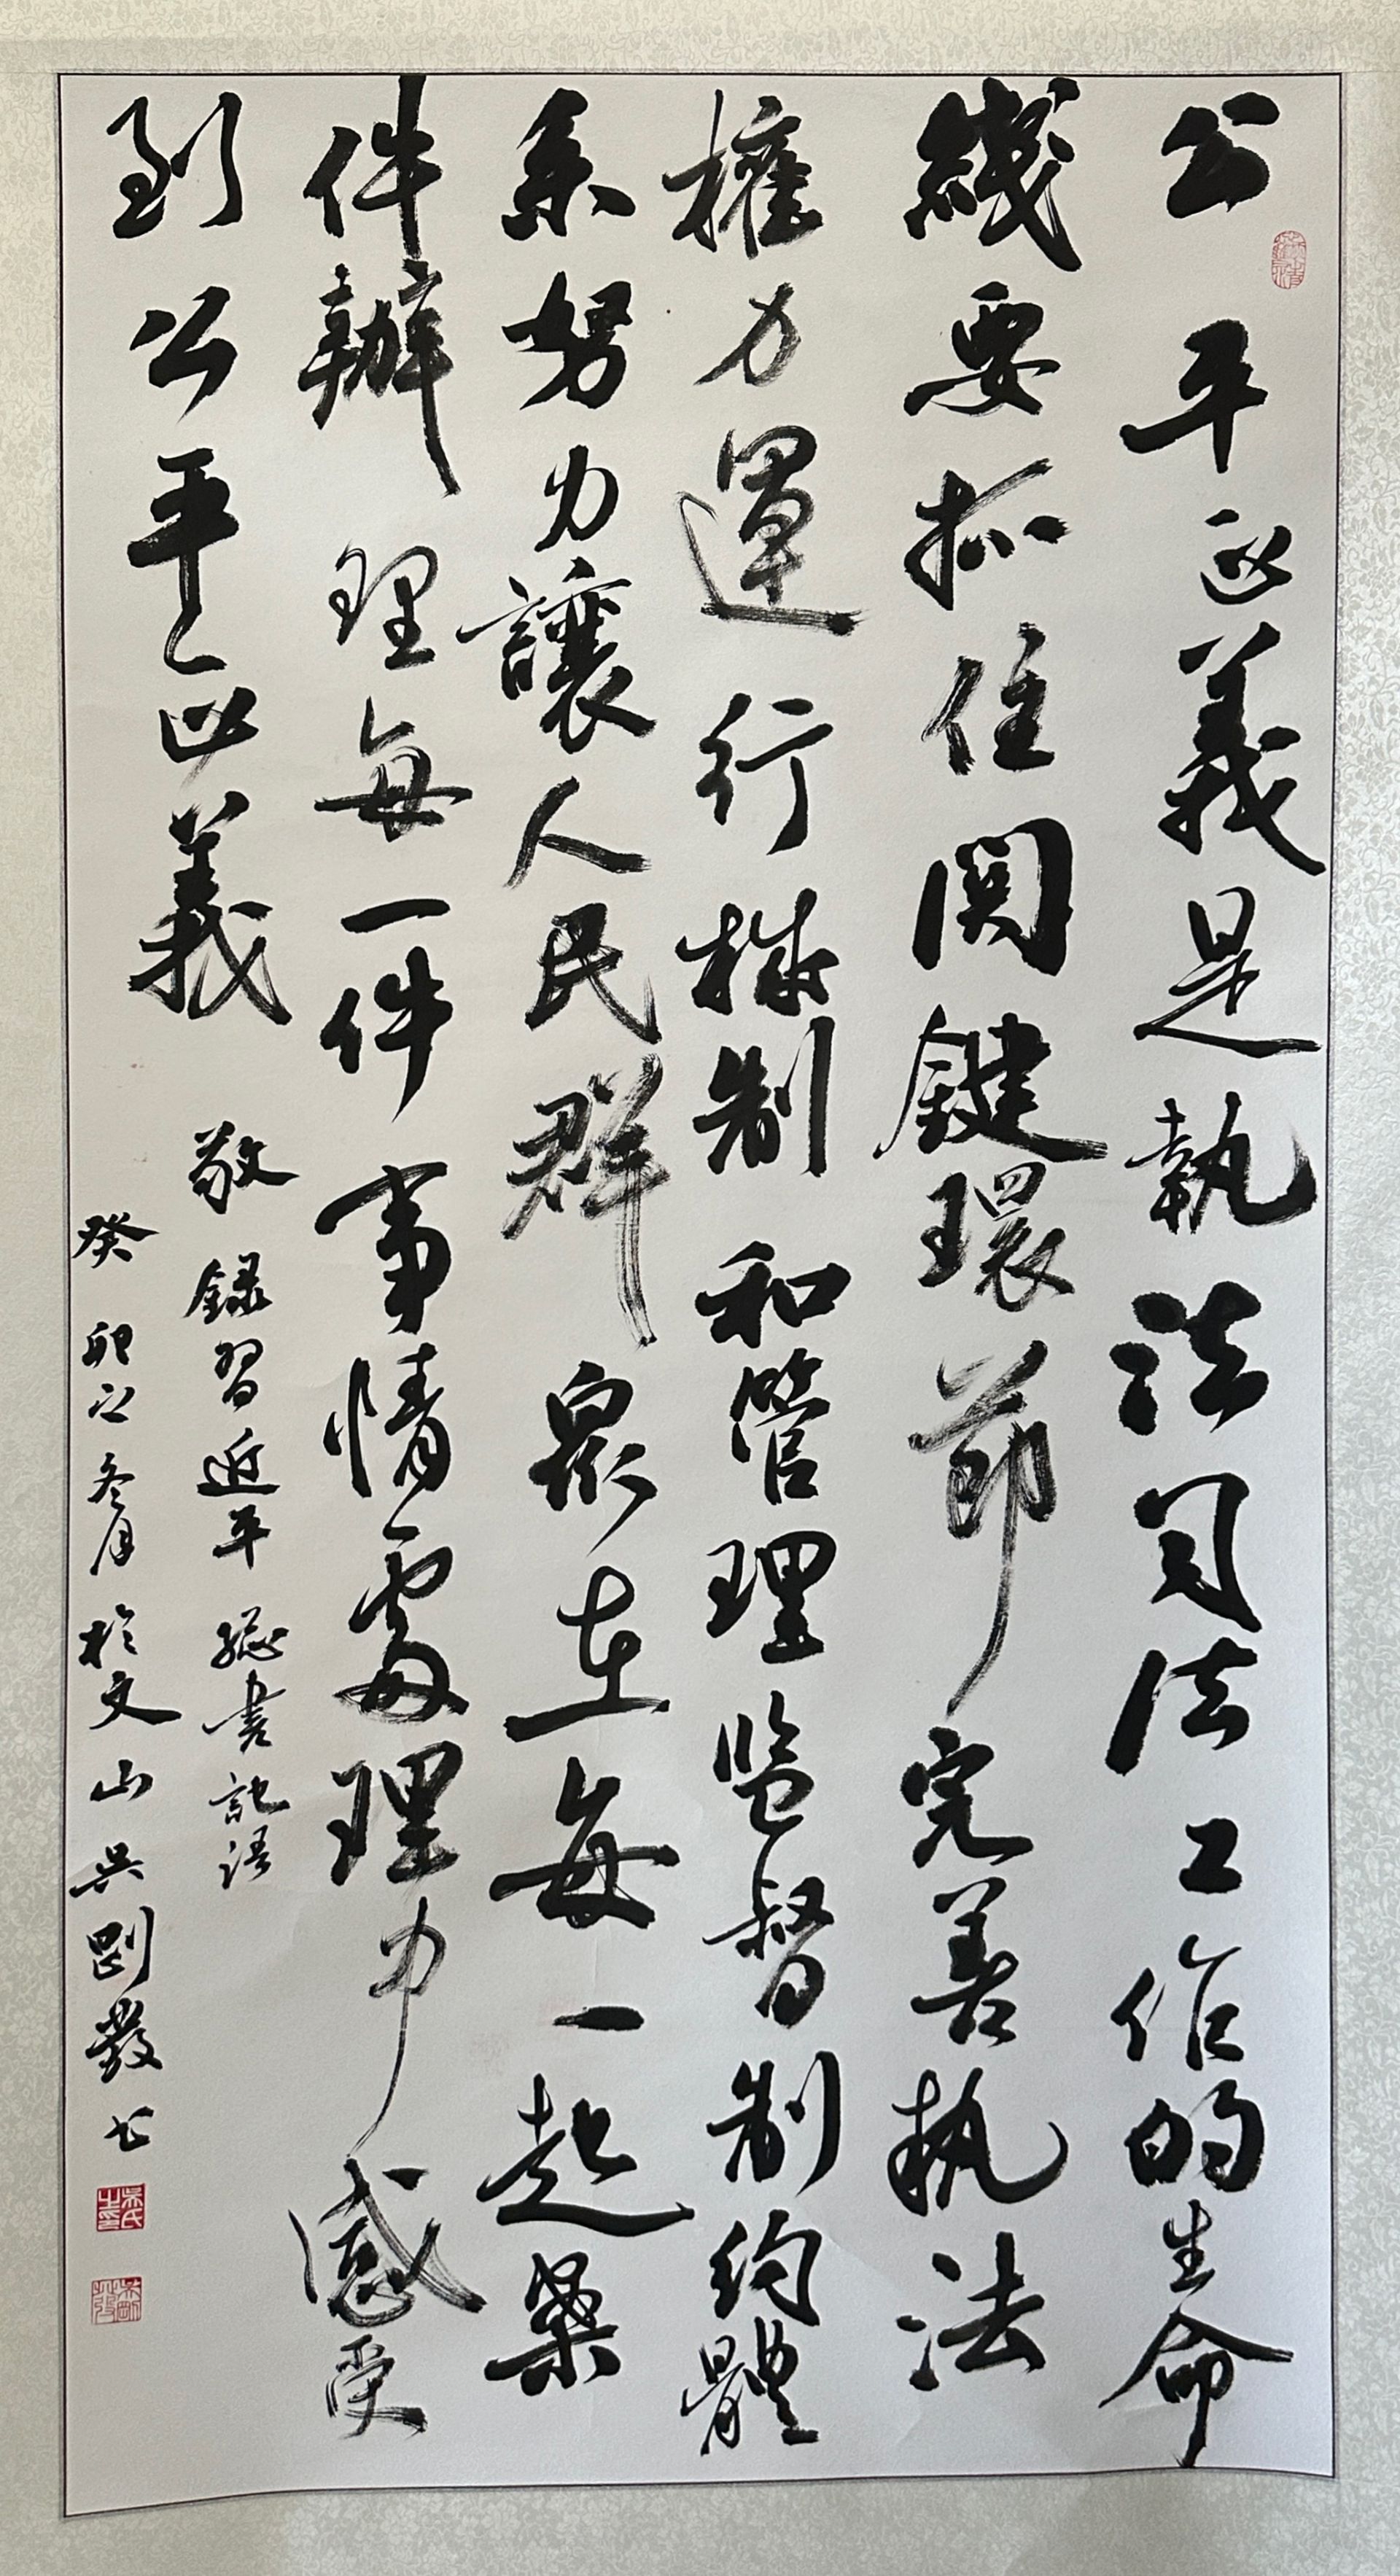 公平正義是執法司法工作的生命
綫要抓住関鍵環節完善执法
權力運行機制和管理監督制約體
系努力讓人民群衆在每一起案
件辦理每一件事情處理中感受
到公平正義
敬録習近平總書記語
癸卯之冬月於文山吴剛發书